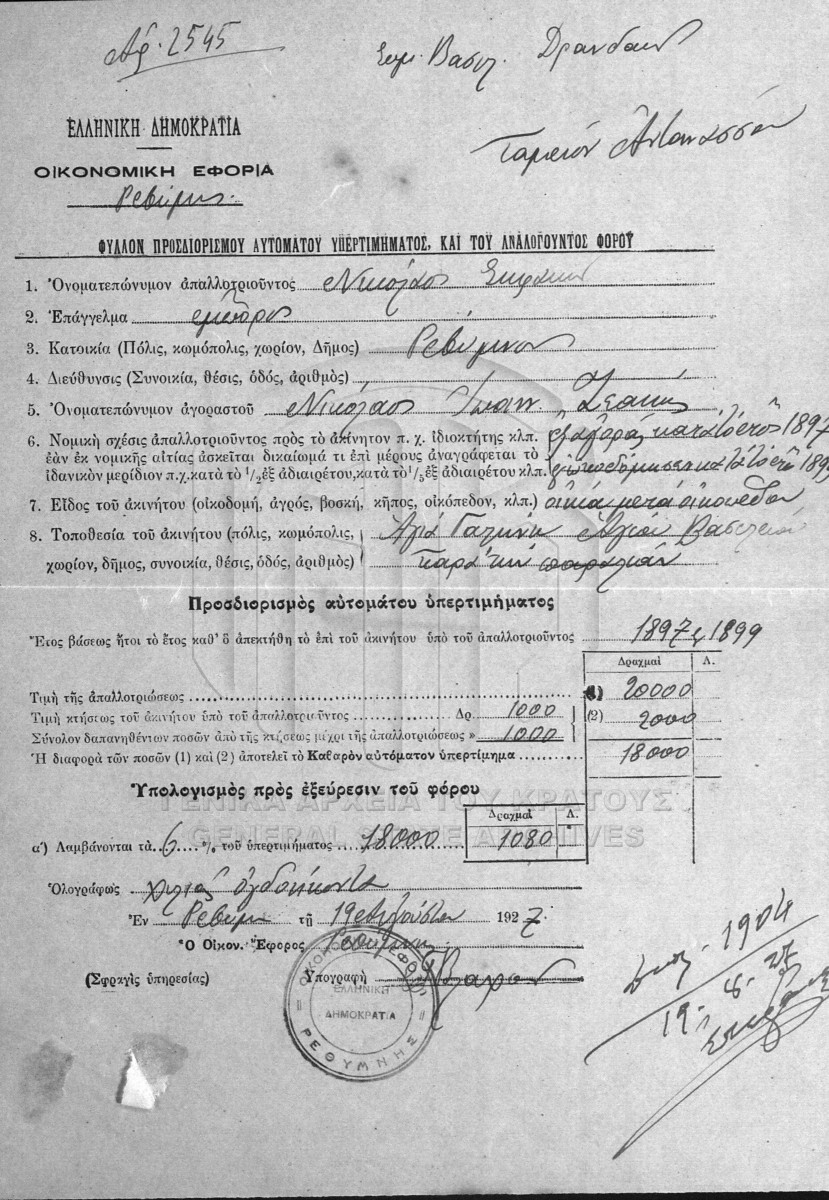 Αρ. 2545
Βασιλ. Δρανδακ
ΕΛΛΗΝΙΚΗ ΔΗΜΟΚΡΑΤΙΑ
ΟΙΚΟΝΟΜΙΚΗ ΕΦΟΡΙΑ
Ρεθύμνης
Ταμείον
ΦΥΛΛΟΝ ΠΡΟΣΔΙΟΡΙΣΜΟΥ ΑΥΤΟΜΑΤΟΥ ΥΠΕΡΤΙΜΗΜΑΤΟΣ, ΚΑΙ ΤΟΥ ΑΝΑΛΟΓΟΥΝΤΟΣ ΦΟΡΟΥ
1. Ὀνοματεπώνυμον ἀπαλλοτριοῦντος Νικολαος
2. Ἐπάγγελμα έμπορος
3. Κατοικία (Πόλις, κωμόπολις, χωρίον, Δῆμος) Ρεθύμνον
4. Διεύθυνσις (Συνοικία, θέσις, ὁδός, ἀριθμὸς)
5. Ὀνοματεπώνυμον ἀγοραστοῦ Νικόλαος Ιωαν.
6. Νομικὴ σχέσις ἀπαλλοτριοῦντος πρὸς τὸ ἀκίνητον π. χ. ἰδιοκτήτης κλπ. ἐξ αγοράς κατά το έτος 1897
ἐὰν ἐκ νομικῆς αἰτίας ἀσκεῖται δικαίωμά τι ἐπὶ μέρους ἀναγράφεται τὸ
ἰδανικὸν μερίδιον π.χ. κατὰ τὸ 1/2 ἐξ ἀδιαιρέτου, κατὰ τὸ 1/5 ἐξ ἀδιαιρέτου κλπ. κατά το έτος 189
7. Εἶδος τοῦ ἀκινήτου (οἰκοδομή, ἀγρός, βοσκή, κῆπος, οἰκόπεδον, κλπ.) οικία μετά οικοπέδου
8. Τοποθεσία τοῦ ἀκινήτου (πόλις, κωμόπολις, Αγία Γαλήνη Αγίου Βασιλείου
χωρίον, δῆμος, συνοικία, θέσις, ὁδός, ἀριθμὸς) παρά την παραλίαν
Προσδιορισμὸς αὐτομάτου ὑπερτιμήματος
Ἔτος βάσεως ἤτοι τὸ ἔτος καθ' ὃ ἀπεκτήθη τὸ ἐπὶ τοῦ ἀκινήτου ὑπὸ τοῦ ἀπαλλοτριοῦντος 1897 1899
Δραχμαὶ Λ.
Τιμὴ τῆς ἀπαλλοτριώσεως (1) 20000
Τιμὴ κτήσεως τοῦ ἀκινήτου ὑπὸ τοῦ ἀπαλλοτριοῦντος Δρ. 1000
(2) 2000
Σύνολον δαπανηθέντων ποσῶν ἀπὸ τῆς κτήσεως μέχρι τῆς ἀπαλλοτριώσεως » 1000
Ἡ διαφορὰ τῶν ποσῶν (1) καὶ (2) ἀποτελεῖ τὸ Καθαρὸν αὐτόματον ὑπερτίμημα 18000
Ὑπολογισμὸς πρὸς ἐξεύρεσιν τοῦ φόρου
ΓΕΝΙΚΑ ΑΡΧΕΙΑ ΤΟΥ ΚΡΑΤΟΥΣ
GENERAL STATE ARCHIVES
Δραχμαὶ Λ.
α') Λαμβάνονται τὰ 6 % τοῦ ὑπερτιμήματος 18000 1080
Ὁλογράφως χιλιας ογδοήκοντα
Ἐν Ρεθύμνη τῇ 19 Αυγούστου 1927
Ὁ Οἰκον. Ἔφορος Ρεθύμνης
(Σφραγὶς ὑπηρεσίας) Ὑπογραφὴ
ΟΙΚΟΝΟΜΙΚΗ ΕΦΟΡΙΑ ΡΕΘΥΜΝΗΣ
ΕΛΛΗΝΙΚΗ
ΔΗΜΟΚΡΑΤΙΑ
1904
19-8-27